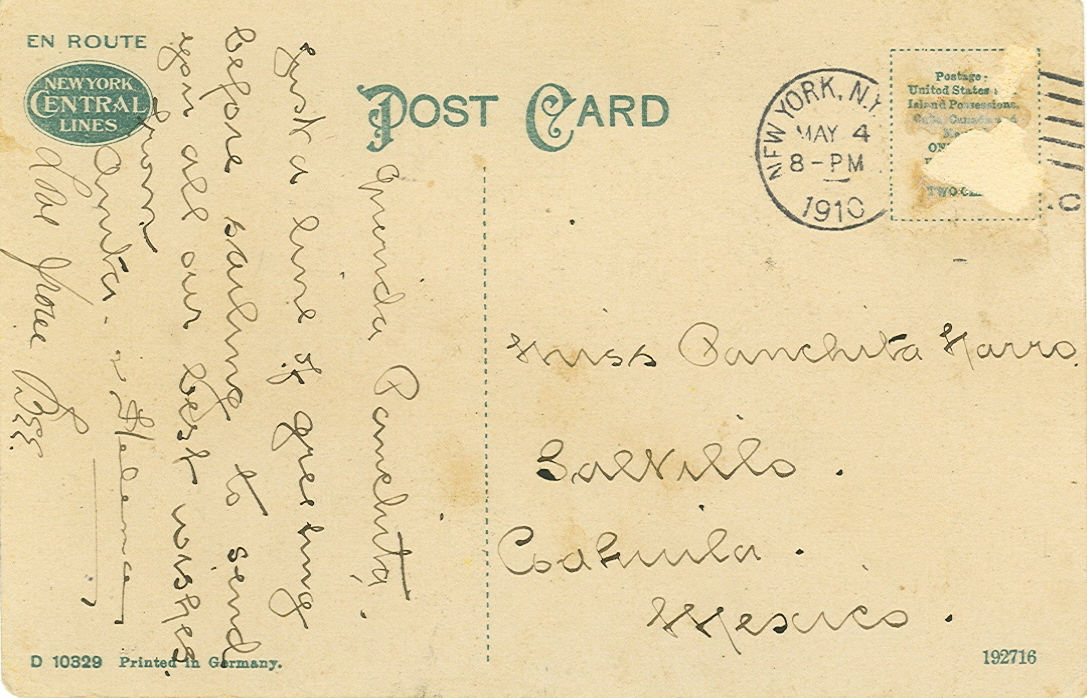 EN ROUTE
NEW YORK
CENTRAL
LINES
POST CARD
NEW YORK, N.Y.
MAY 4
8-PM
1910
Postage:
United States
Island Possessions,
Cuba, Canada and
TWO
Querida Panchita,
Just a line of greeting
before sailing to send
you all our best wishes.
from
Anita & Helena
Miss Panchita Harro.
Saltillo.
Coahuila.
Mexico.
D 10329 Printed in Germany.
192716